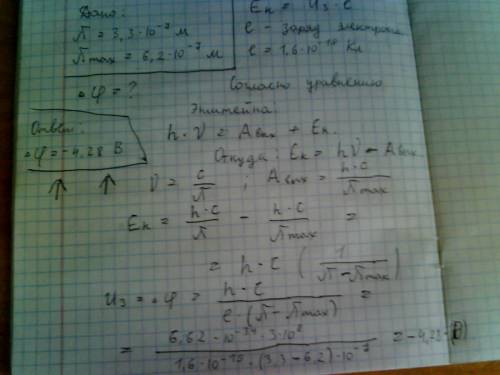 Дано:
λ = 3,3·10⁻⁷ м
λmax = 6,2·10⁻⁷ м
Δφ = ?
Ответ:
Δφ = -4,28 В
Eк = Uз·e
e - заряд электрона
e = 1,6·10⁻¹⁹ Кл
Согласно уравнению
Энштейна:
h·ν = Aвых + Eк.
Откуда: Eк = hν - Aвых
ν = c/λ ; Aвых = h·c/λmax
Eк = h·c/λ - h·c/λmax =
= h·c (1/(λ-λmax))
Uз = Δφ = h·c/(e·(λ-λmax)) =
= 6,62·10⁻³⁴·3·10⁸/(1,6·10⁻¹⁹·(3,3-6,2)·10⁻⁷) = -4,28 (В)